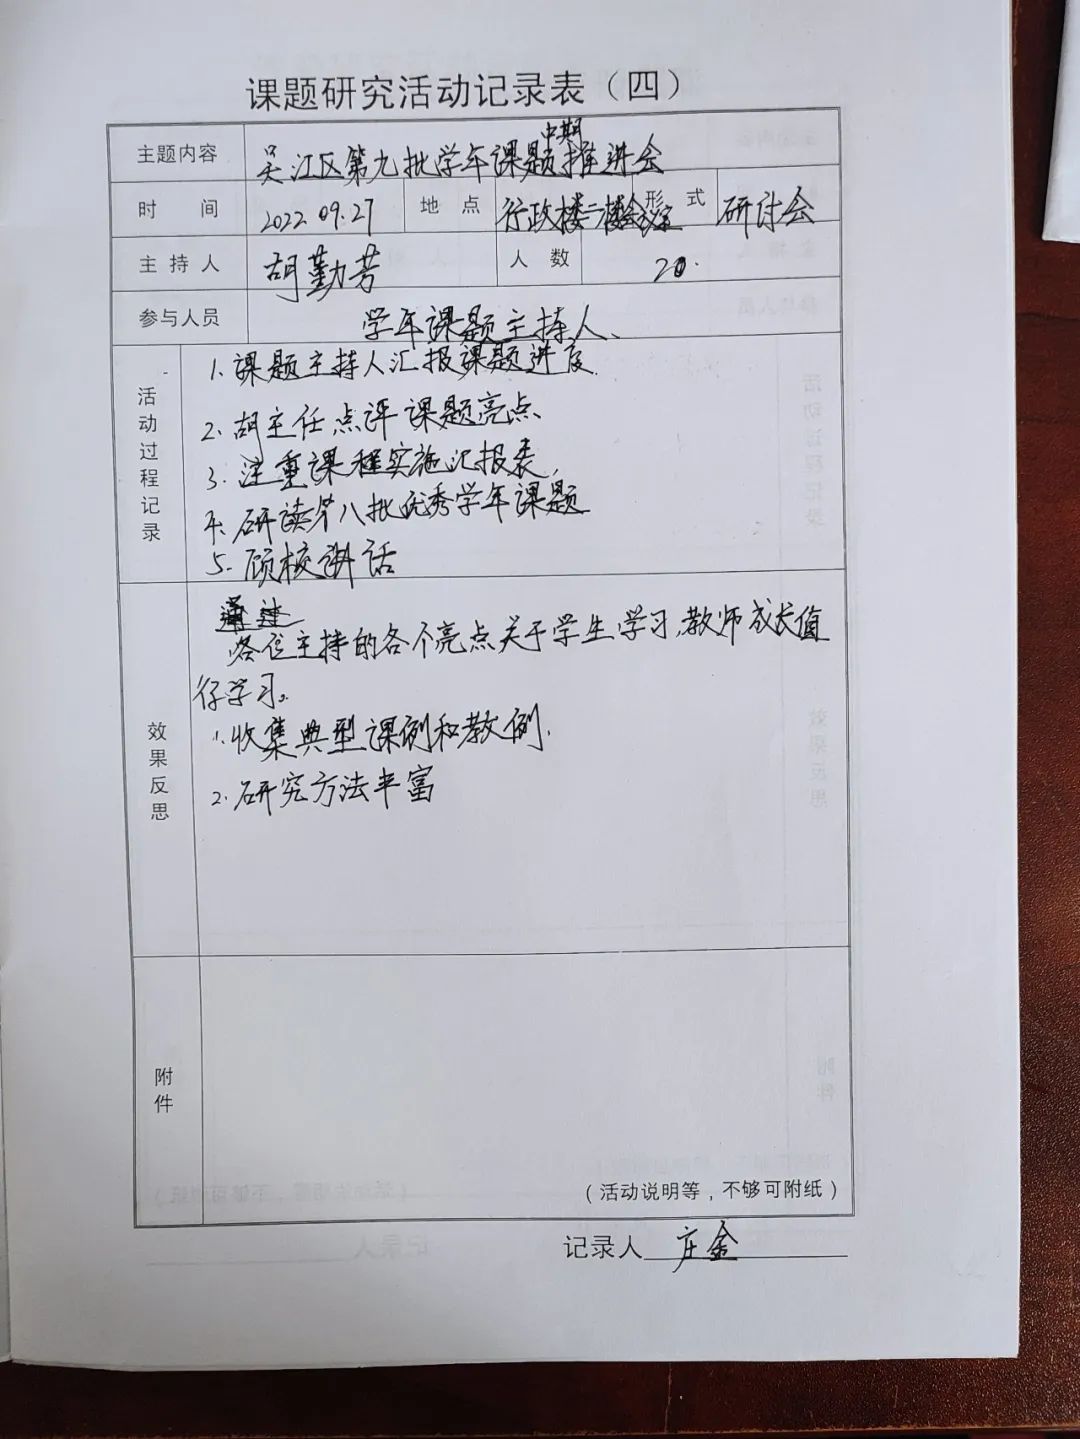 课题研究活动记录表（四）
主题内容 吴江区第九批学年课题中期推进会
时间 2022.09.27 地点 行政楼二楼会议室 形式 研讨会
主持人 胡勤芳 人数 20.
参与人员 学年课题主持人、
活动过程记录
1. 课题主持人汇报课题进度
2. 胡主任点评课题亮点、
3. 注重课程实施汇报表,
4. 研读第八批优秀学年课题
5. 顾校讲话
效果反思
通过
各位主持的各个亮点关于学生学习、教师成长值
得学习。
1. 收集典型课例和教例.
2. 研究方法丰富
附件
（活动说明等，不够可附纸）
记录人 庄金